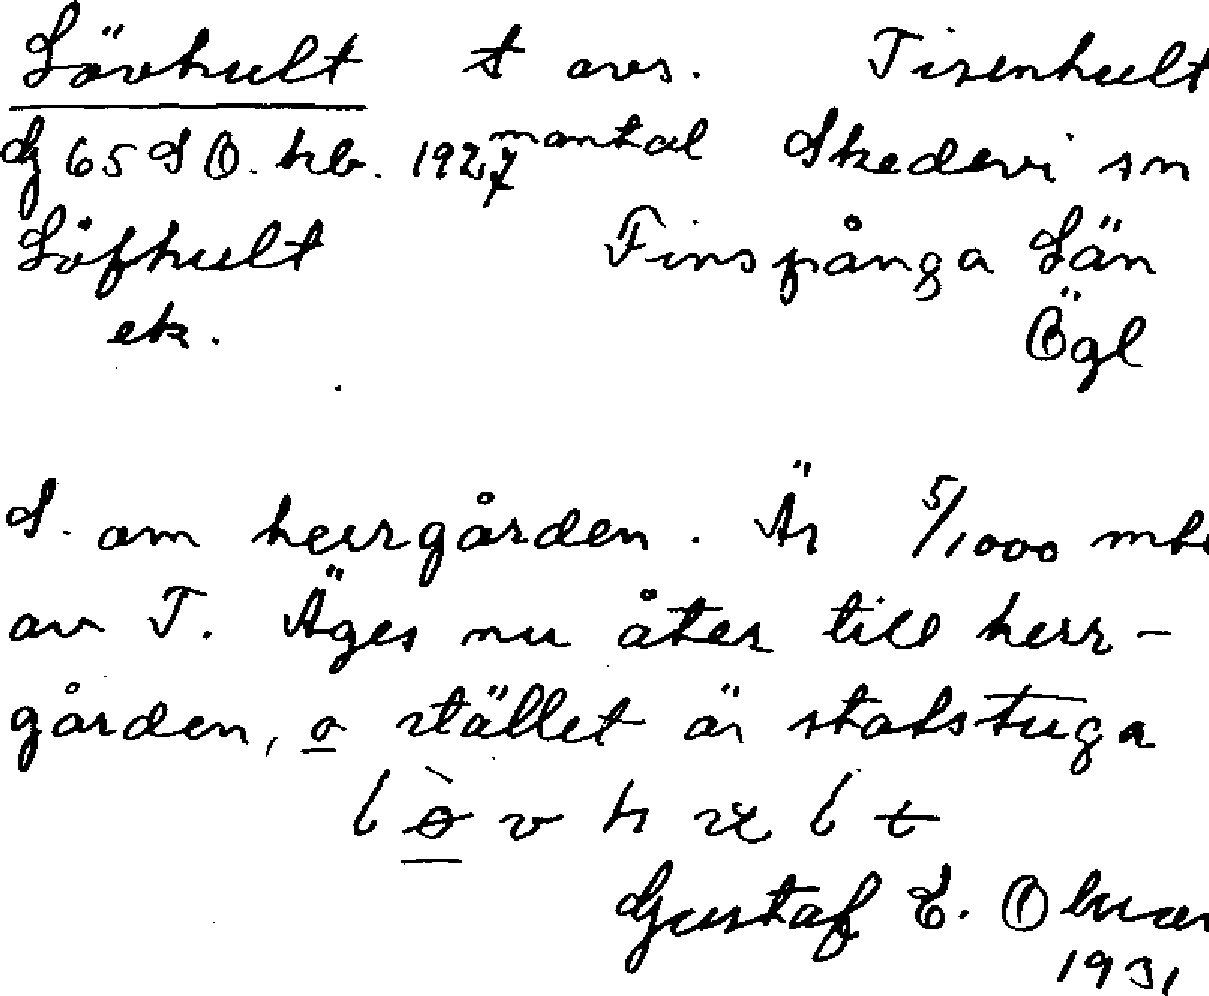 Lövhult t avs. Tisenhult
G 65 SO. kb. 1927 mantal Skedevi sn
Löfhult Finspånga Län
ek. Ögl
S. om herrgården. Är 5/1000 mtl
av T. Äges nu åter till herr-
gården, o stället är statstuga
Gustaf E.
1931